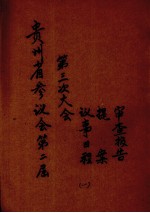 审查报告
提案
议事日程
第三次大会
贵州省参议会第二届
(一)